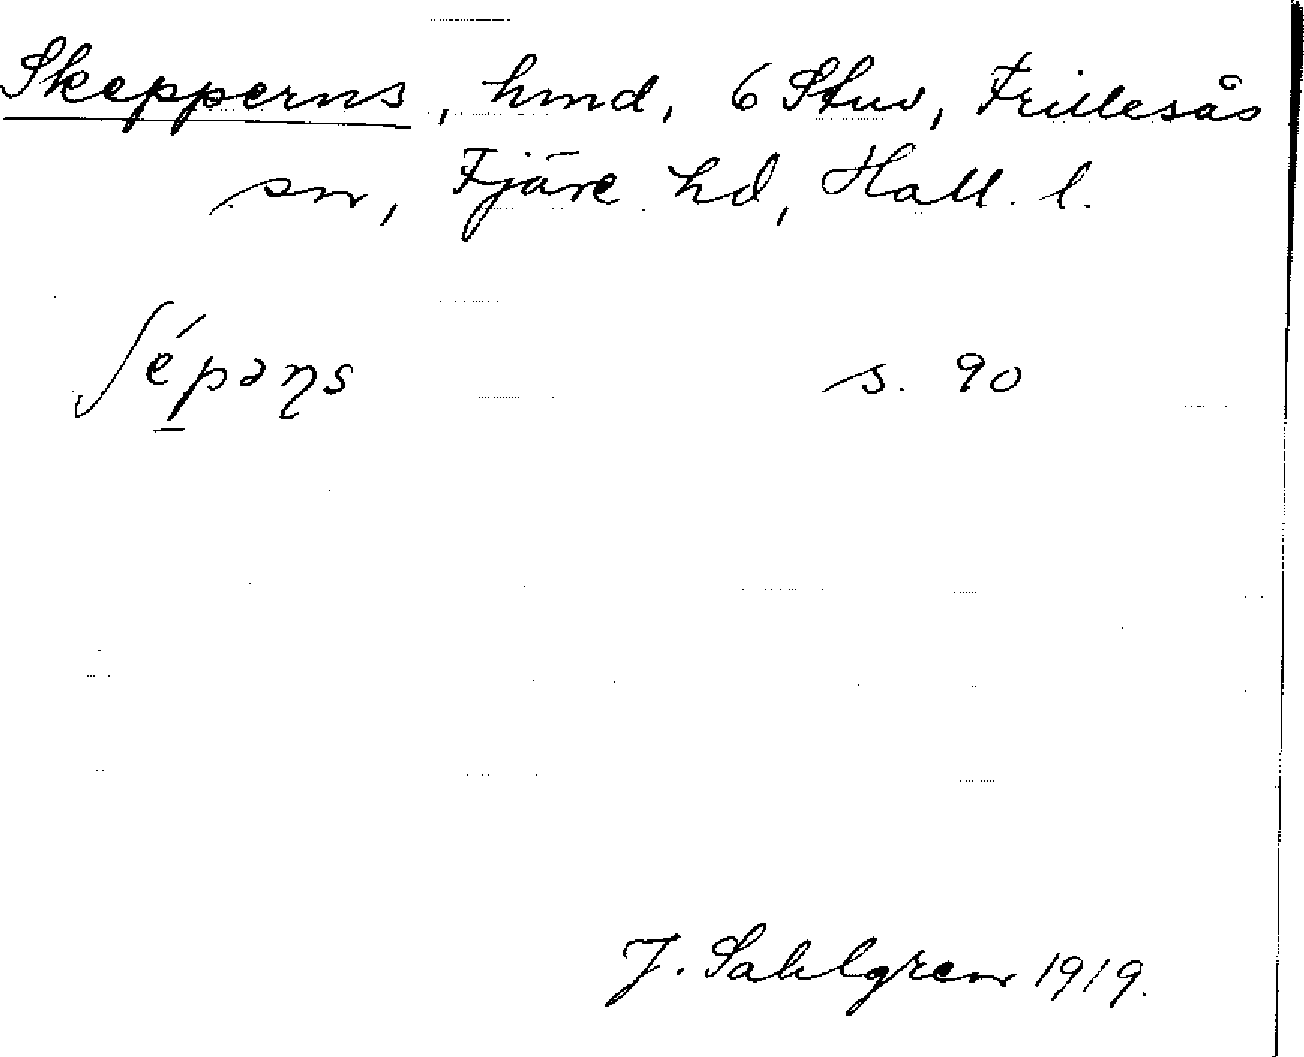 Skepperns, hmd, 6 Stuv, Frillesås
sn, Fjäre hd, Hall. l.
ʃép̠əɳs s. 90
J. Sahlgren 1919.